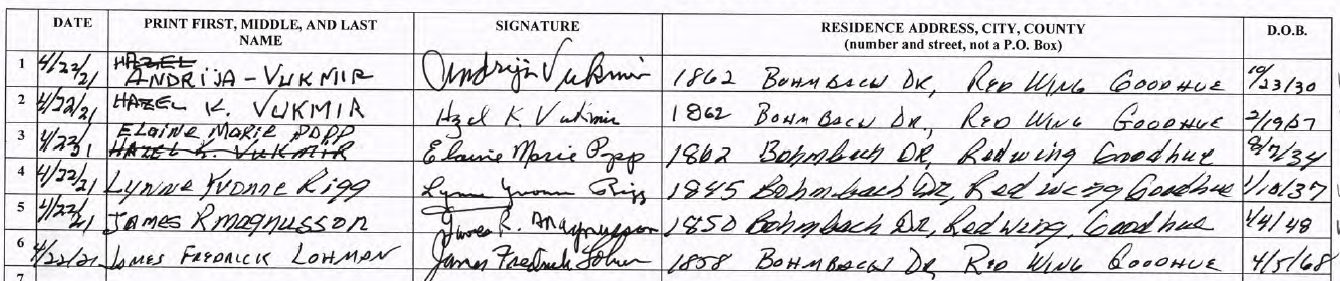 DATE PRINT FIRST, MIDDLE, AND LAST NAME SIGNATURE RESIDENCE ADDRESS, CITY, COUNTY (number and street, not a P.O. Box) D.O.B.
1 4/22/21 HAZEL ANDRIJA - VUKMIR Andrija Vukmir 1862 BOHMBACH DR, RED WING GOODHUE 10/23/30
2 4/22/21 HAZEL K. VUKMIR Hazel K. Vukmir 1862 BOHMBACH DR, RED WING GOODHUE 2/19/
3 4/22/21 ELAINE MARIE POPP HAZEL K. VUKMIR Elaine Marie Popp 1862 Bohmbach DR, Redwing Goodhue 8/7/34
4 4/22/21 Lynne Yvonne Rigg Lynne Yvonne Rigg 1845 Bohmbach DR, Red wing Goodhue 1/10/37
5 4/22/21 JAMES R MAGNUSSON James R. Magnusson 1850 Bohmbach Dr, Red Wing, Goodhue 1/4/48
6 4/22/21 JAMES FREDRICK LOHMAN James Fredrick Lohman 1858 BOHMBACH DR RED WING GOODHUE 4/5/68
7